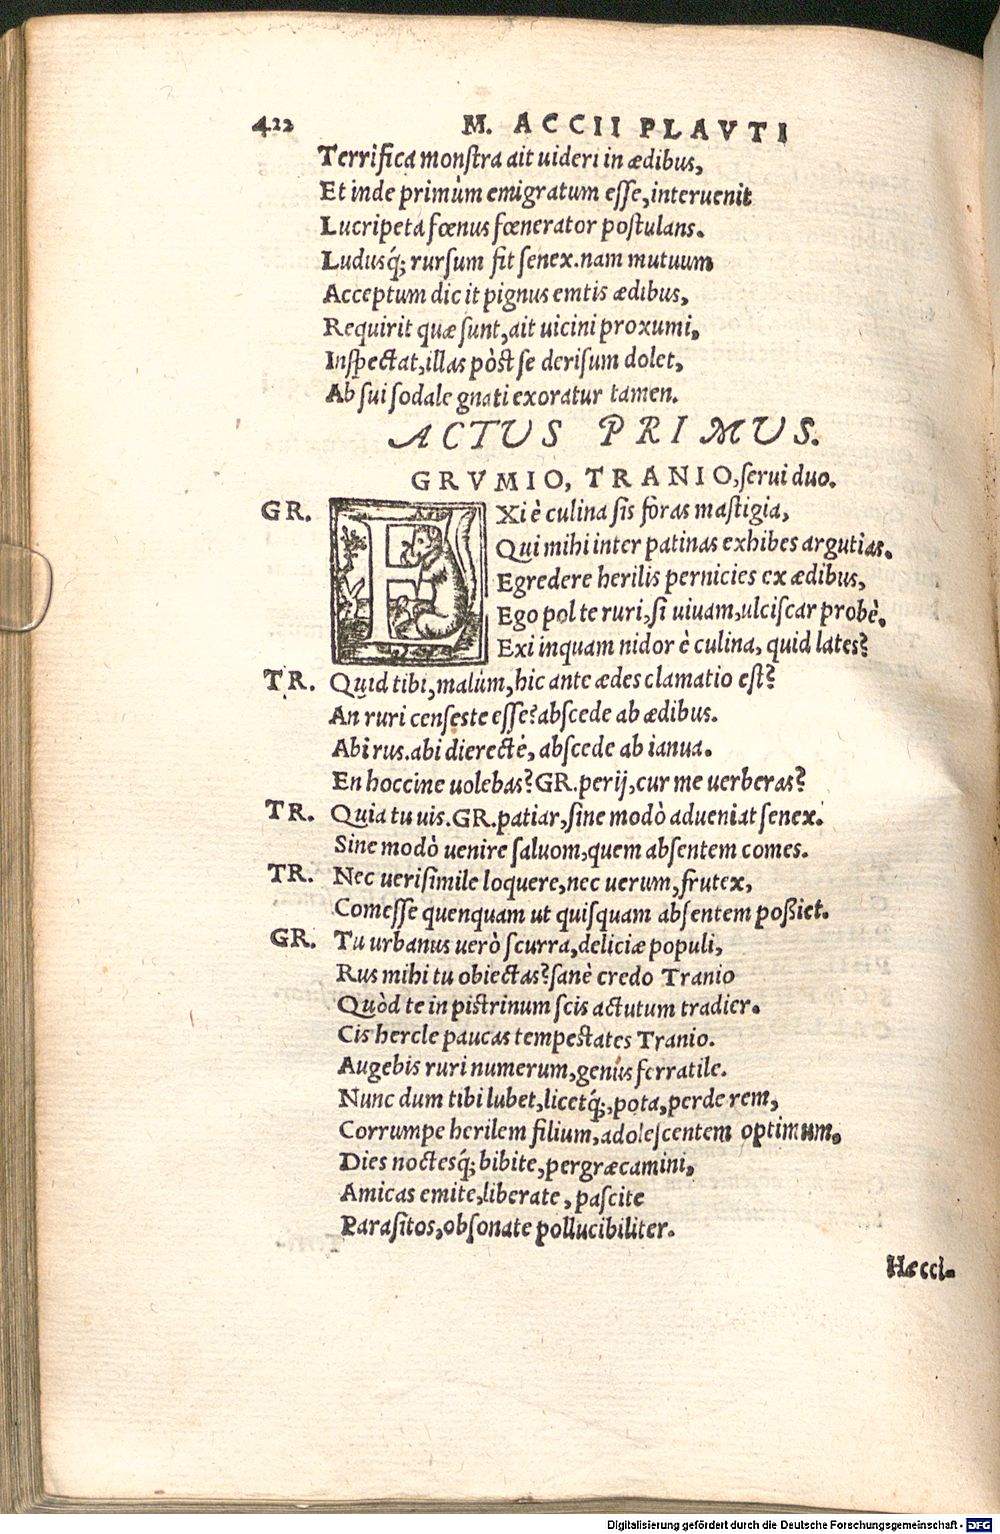 422 M. ACCII PLAVTI
Terrifica monſtra ait uideri in ædibus,
Et inde primùm emigratum eſſe, interuenit
Lucripeta fœnus fœnerator poſtulans.
Ludusq́; rurſum fit ſenex. nam mutuum
Acceptum dicit pignus emtis ædibus,
Requirit quæ ſunt, ait uicini proxumi,
Inſpectat, illas pòst ſe deriſum dolet,
Ab ſui ſodale gnati exoratur tamen.
ACTUS PRIMUS.
GRVMIO, TRANIO, ſerui duo.
GR. EXi è culina ſis foras maſtigia,
Qui mihi inter patinas exhibes argutias.
Egredere herilis pernicies ex ædibus,
Ego pol te ruri, ſi uiuam, ulciſcar probè.
Exi inquam nidor è culina, quid lates?
TR. Quid tibi, malùm, hic ante ædes clamatio eſt?
An ruri cenſeste eſſe? abſcede ab ædibus.
Abi rus. abi dierectè, abſcede ab ianua.
En hoccine uolebas? GR. perij, cur me uerberas?
TR. Quia tu uis. GR. patiar, ſine modò adueniat ſenex.
Sine modò uenire ſaluom, quem abſentem comes.
TR. Nec ueriſimile loquere, nec uerum, frutex,
Comeſſe quenquam ut quiſquam abſentem poßiet.
GR. Tu urbanus uerò ſcurra, deliciæ populi,
Rus mihi tu obiectas? ſanè credo Tranio
Quòd te in pistrinum ſcis actutum tradier.
Cis hercle paucas tempeſtates Tranio.
Augebis ruri numerum, genus ferratile.
Nunc dum tibi lubet, licetq́;, pota, perde rem,
Corrumpe herilem filium, adoleſcentem optimum,
Dies noctesq́; bibite, pergræcamini,
Amicas emite, liberate, paſcite
Paraſitos, obſonate pollucibiliter.
Hæcci-
Digitalisierung gefördert durch die Deutsche Forschungsgemeinschaft - DFG